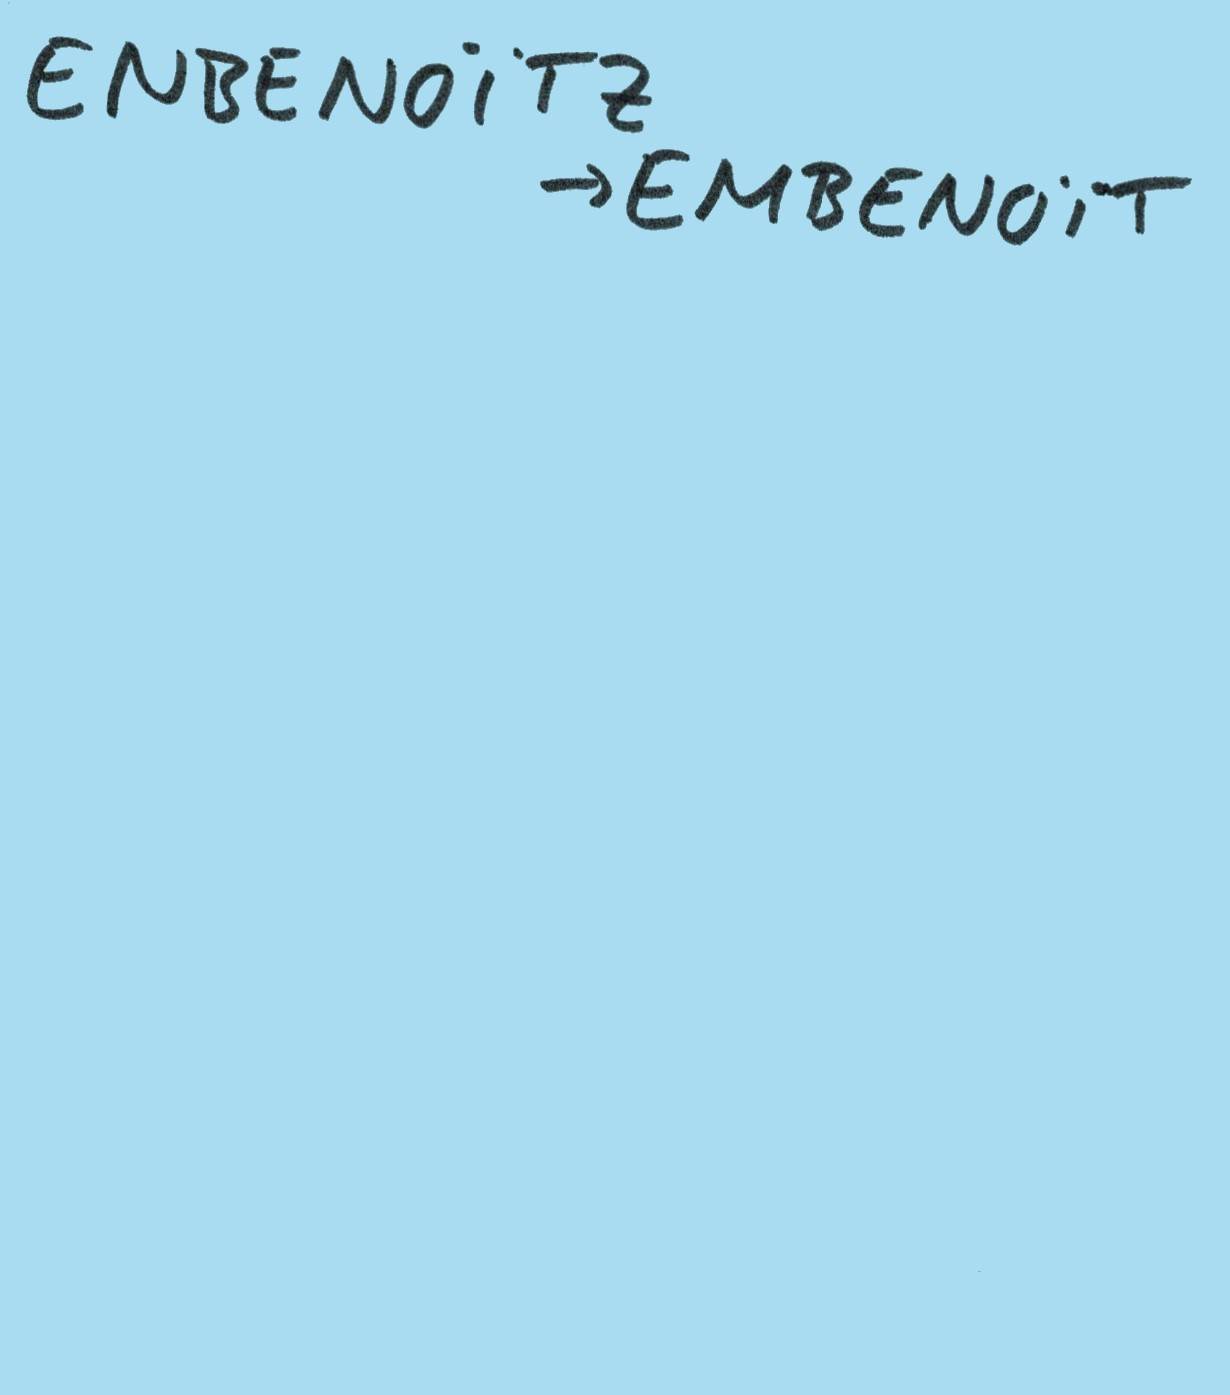 ENBENOiTZ
→EMBENOiT